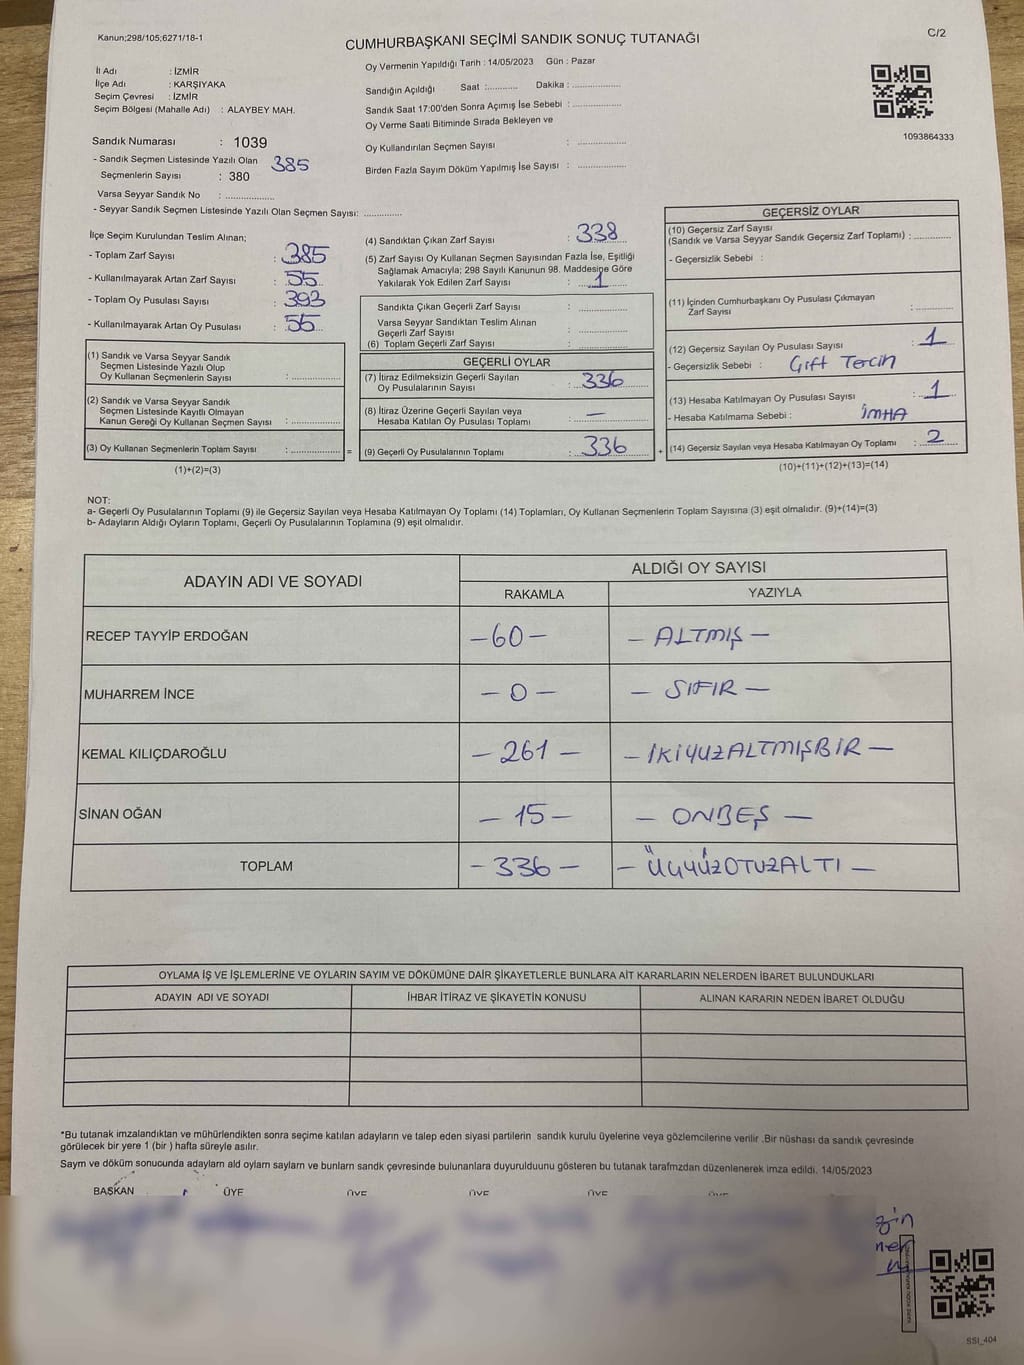 Kanun;298/105;6271/18-1
CUMHURBAŞKANI SEÇİMİ SANDIK SONUÇ TUTANAĞI
C/2
İl Adı : İZMİR
İlçe Adı : KARŞIYAKA
Seçim Çevresi : İZMİR
Seçim Bölgesi (Mahalle Adı) : ALAYBEY MAH.
Oy Vermenin Yapıldığı Tarih : 14/05/2023 Gün : Pazar
Sandığın Açıldığı Saat :........... Dakika : ..................
Sandık Saat 17:00'den Sonra Açımış İse Sebebi : ..................
Oy Verme Saati Bitiminde Sırada Bekleyen ve
Oy Kullandırılan Seçmen Sayısı : ..................
Birden Fazla Sayım Döküm Yapılmış İse Sayısı : ..................
1093864333
Sandık Numarası : 1039
- Sandık Seçmen Listesinde Yazılı Olan 385
Seçmenlerin Sayısı : 380
Varsa Seyyar Sandık No : ..................
- Seyyar Sandık Seçmen Listesinde Yazılı Olan Seçmen Sayısı: ..............
İlçe Seçim Kurulundan Teslim Alınan;
- Toplam Zarf Sayısı : 385
- Kullanılmayarak Artan Zarf Sayısı : 55
- Toplam Oy Pusulası Sayısı : 393
- Kullanılmayarak Artan Oy Pusulası : 55
(1) Sandık ve Varsa Seyyar Sandık
Seçmen Listesinde Yazılı Olup
Oy Kullanan Seçmenlerin Sayısı : ..................
(2) Sandık ve Varsa Seyyar Sandık
Seçmen Listesinde Kayıtlı Olmayan
Kanun Gereği Oy Kullanan Seçmen Sayısı : ..................
(3) Oy Kullanan Seçmenlerin Toplam Sayısı : .................. =
(1)+(2)=(3)
(4) Sandıktan Çıkan Zarf Sayısı : 338
(5) Zarf Sayısı Oy Kullanan Seçmen Sayısından Fazla İse, Eşitliği
Sağlamak Amacıyla; 298 Sayılı Kanunun 98. Maddesine Göre
Yakılarak Yok Edilen Zarf Sayısı : 1
Sandıkta Çıkan Geçerli Zarf Sayısı : ..................
Varsa Seyyar Sandıktan Teslim Alınan
Geçerli Zarf Sayısı : ..................
(6) Toplam Geçerli Zarf Sayısı : ..................
GEÇERLİ OYLAR
(7) İtiraz Edilmeksizin Geçerli Sayılan
Oy Pusulalarının Sayısı : 336
(8) İtiraz Üzerine Geçerli Sayılan veya
Hesaba Katılan Oy Pusulası Toplamı : —
(9) Geçerli Oy Pusulalarının Toplamı : 336 +
GEÇERSİZ OYLAR
(10) Geçersiz Zarf Sayısı
(Sandık ve Varsa Seyyar Sandık Geçersiz Zarf Toplamı) : ..............
- Geçersizlik Sebebi :
(11) İçinden Cumhurbaşkanı Oy Pusulası Çıkmayan
Zarf Sayısı : ..............
(12) Geçersiz Sayılan Oy Pusulası Sayısı : 1
- Geçersizlik Sebebi : Çift Tercih
(13) Hesaba Katılmayan Oy Pusulası Sayısı : 1
- Hesaba Katılmama Sebebi : İMHA
(14) Geçersiz Sayılan veya Hesaba Katılmayan Oy Toplamı : 2
(10)+(11)+(12)+(13)=(14)
NOT:
a- Geçerli Oy Pusulalarının Toplamı (9) ile Geçersiz Sayılan veya Hesaba Katılmayan Oy Toplamı (14) Toplamları, Oy Kullanan Seçmenlerin Toplam Sayısına (3) eşit olmalıdır. (9)+(14)=(3)
b- Adayların Aldığı Oyların Toplamı, Geçerli Oy Pusulalarının Toplamına (9) eşit olmalıdır.
ADAYIN ADI VE SOYADI
ALDIĞI OY SAYISI
RAKAMLA YAZIYLA
RECEP TAYYİP ERDOĞAN -60- - ALTMIŞ -
MUHARREM İNCE - 0 - - SIFIR -
KEMAL KILIÇDAROĞLU - 261 - - İKİYUZALTMIŞBİR -
SİNAN OĞAN - 15 - - ONBEŞ -
TOPLAM - 336 - - ÜÇYÜZOTUZALTI -
OYLAMA İŞ VE İŞLEMLERİNE VE OYLARIN SAYIM VE DÖKÜMÜNE DAİR ŞİKAYETLERLE BUNLARA AİT KARARLARIN NELERDEN İBARET BULUNDUKLARI
ADAYIN ADI VE SOYADI İHBAR İTİRAZ VE ŞİKAYETİN KONUSU ALINAN KARARIN NEDEN İBARET OLDUĞU
*Bu tutanak imzalandıktan ve mühürlendikten sonra seçime katılan adayların ve talep eden siyasi partilerin sandık kurulu üyelerine veya gözlemcilerine verilir .Bir nüshası da sandık çevresinde
görülecek bir yere 1 (bir ) hafta süreyle asılır.
Saym ve döküm sonucunda adaylarn ald oylarn saylarn ve bunlarn sandk çevresinde bulunanlara duyurulduunu gösteren bu tutanak tarafmzdan düzenlenerek imza edildi. 14/05/2023
BAŞKAN ÜYE ÜYE ÜYE ÜYE
SSI_404